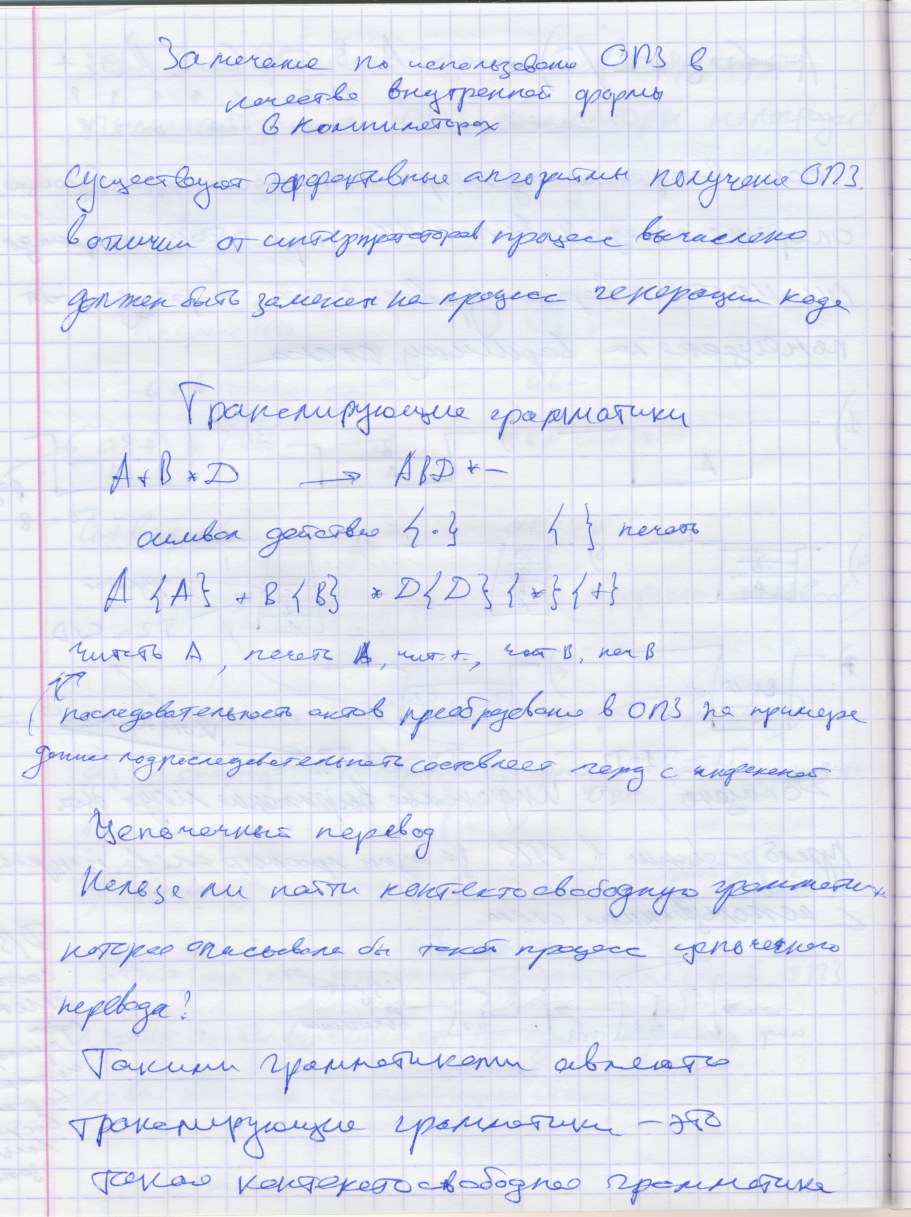 Замечание по использованию ОПЗ в
качестве внутренней формы
в компиляторах
Существуют эффективные алгоритмы получения ОПЗ.
В отличии от интерпретаторов процесс вычисления
должен быть заменен на процесс генерации кода
Транслирующие грамматики
A+B*D → ABD*–
символ действия {·} { } печать
A {A} + B {B} * D{D}{*}{+}
Читать A, печать A, чит. +, чит B, печ B
последовательность актов преобразования в ОПЗ на примере
данная подпоследовательность составляет с
Цепочечный перевод
Нельзя ли найти контекстосвободную грамматику
которая описывала бы такой процесс цепочечного
перевода?
Такими грамматиками являются
транслирующие грамматики – это
такая контекстосвободная грамматика